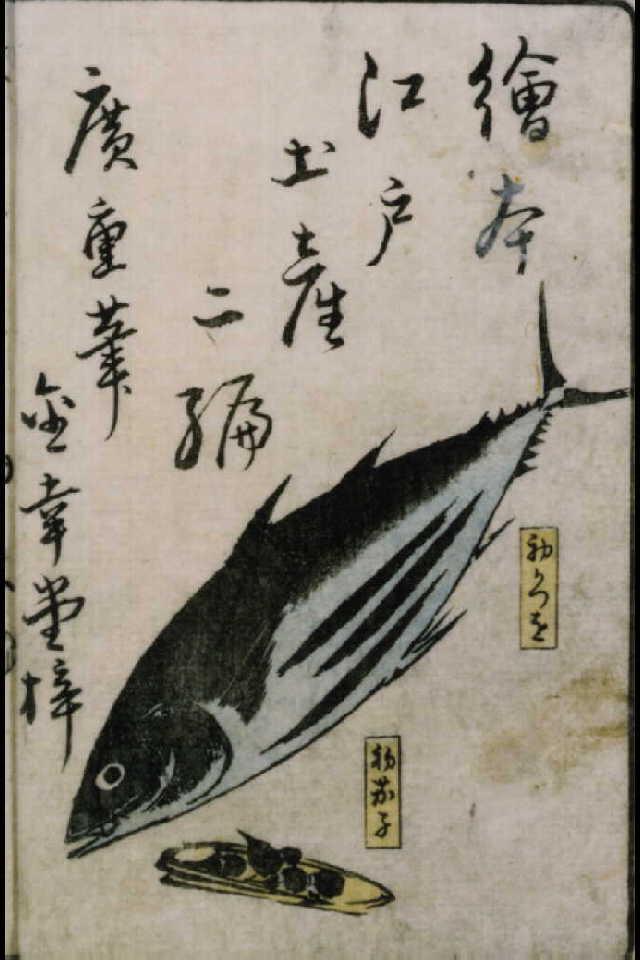 繪本
江戸
土産
二編
廣重筆
金幸堂梓
初かつを
初茄子